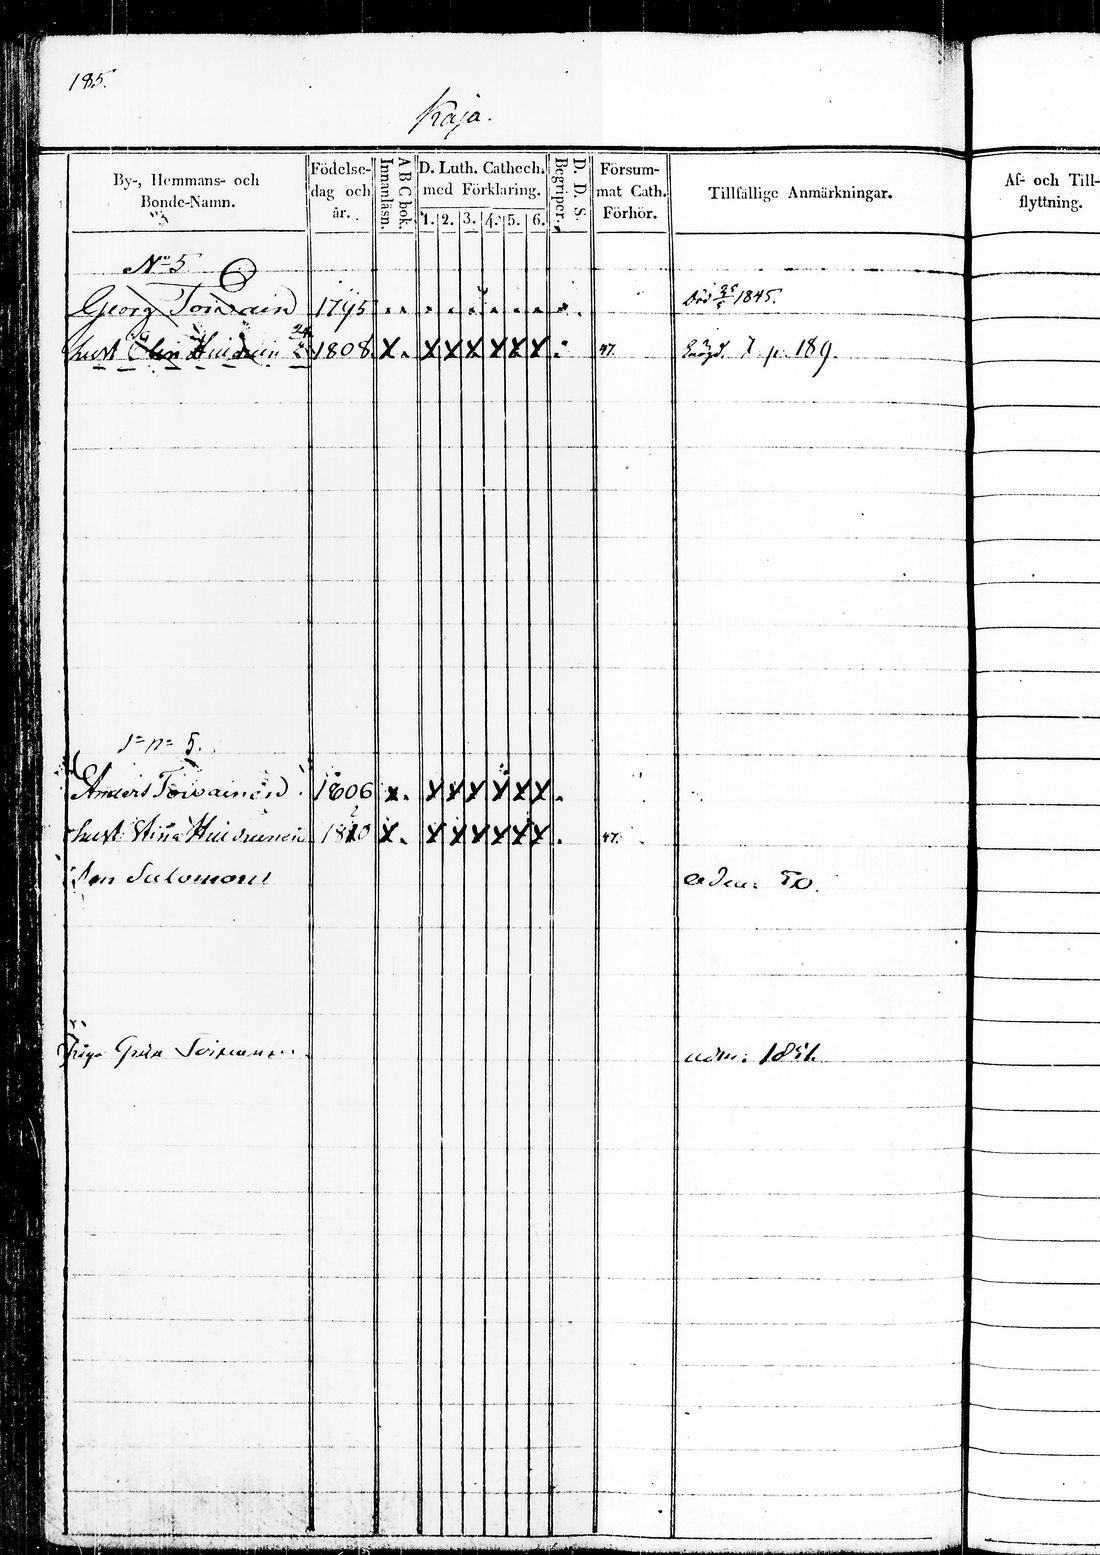 185.
Kaja.
By-, Hemmans- och Bonde-Namn.
Födelse-dag och år.
A B C bok. Innanläsn.
D. Luth. Cathech. med Förklaring.
1. 2. 3. 4. 5. 6.
D. D. S. Begriper.
Försum-mat Cath. Förhör.
Tillfällige Anmärkningar.
Af- och Till-flyttning.
No 5
Georg Toivain 1795 Död 25/5 1845.
hust Elin 1808 X. X X X X X X 47. p. 189.
5.
Anders Toivainen 1806 x. X X X X X X
hust Stina 1810 X. X X X X X X 47.
Son Salomon 50.
Piga Greta adm: 1851.